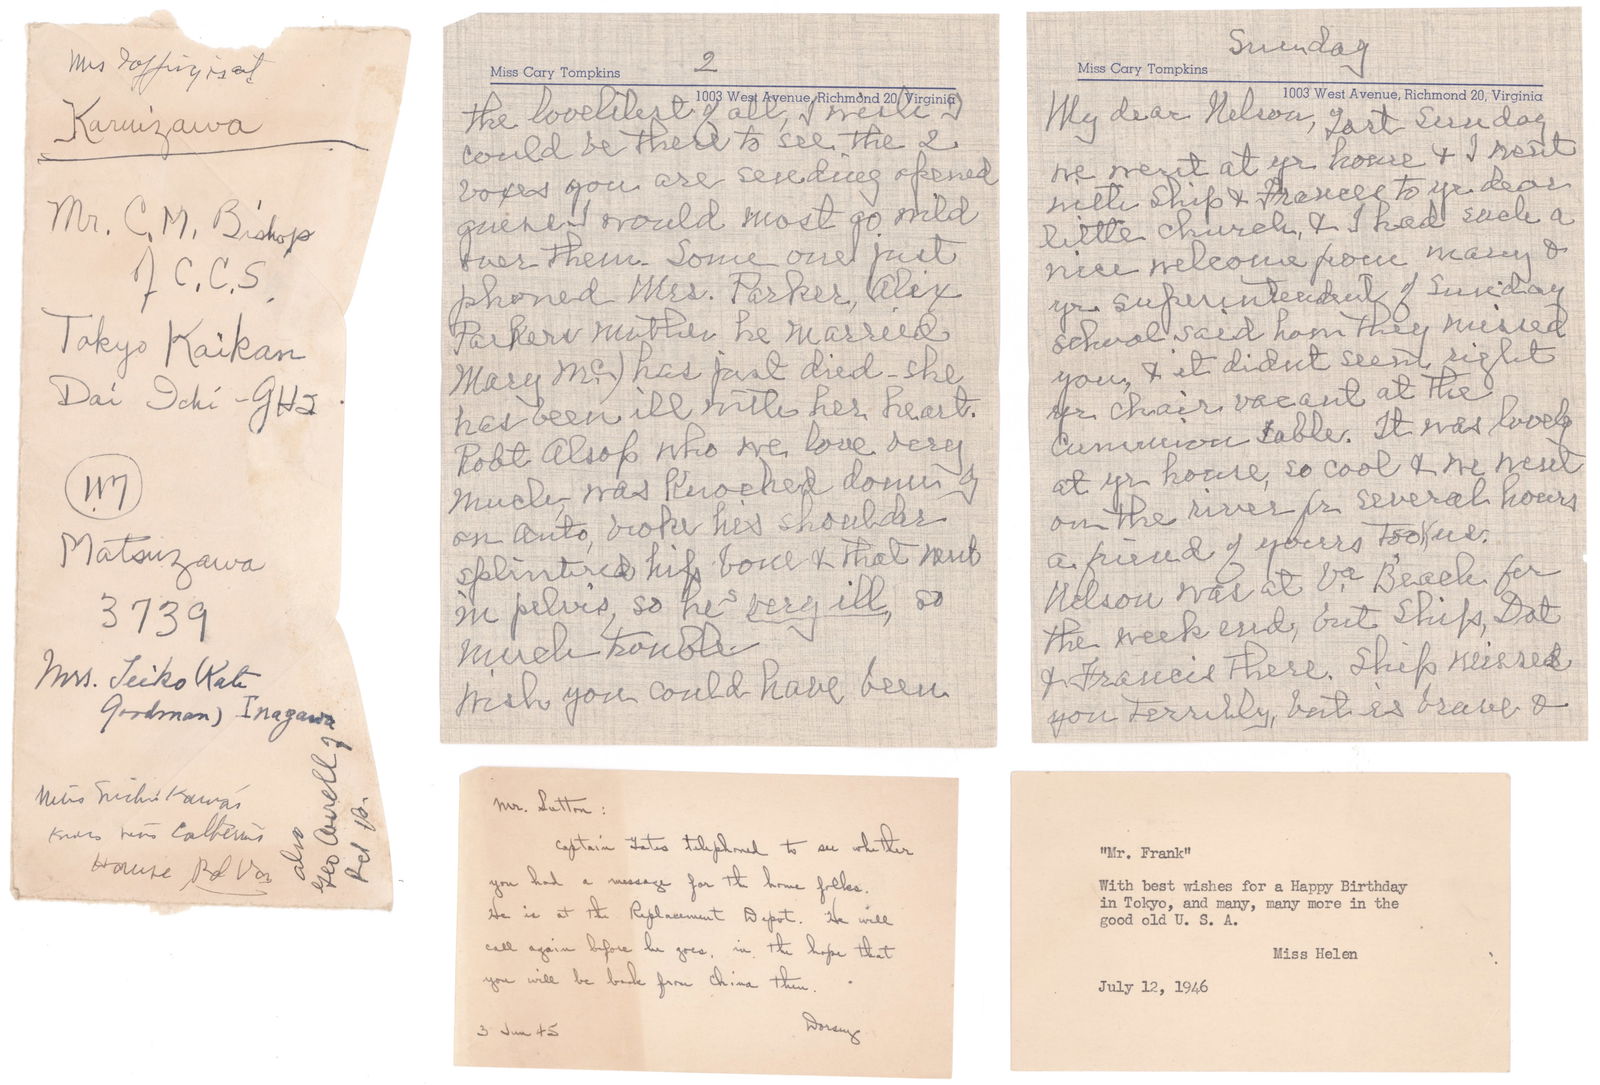 Mrs
Karuizawa
Mr. C. M. Bishop
of C.C.S.
Tokyo Kaikan
Dai Ichi - GHQ
Matsuzawa
3739
Mrs. Teiko Kate
Goodman) Inagawa
Miss Kawa's
knows Miss Catherine
House, Rd Va
also
Geo
2
Miss Cary Tompkins
1003 West Avenue, Richmond 20, Virginia
the loveliest of all, I wish I
could be there to see the 2
boxes you are sending opened
I would most go wild
over them. Some one just
phoned Mrs. Parker, Alix
Parkers mother he married
Mary Mc) has just died - she
has been ill with her heart.
Robt Alsop who we love very
much, was knocked down by
an auto, broke his shoulder
splintered hip bone & that went
in pelvis, so he's very ill, so
much trouble
wish you could have been
Sunday
Miss Cary Tompkins
1003 West Avenue, Richmond 20, Virginia
My dear Nelson, Last Sunday
we went at yr house & I went
with Ship & Frances to yr dear
little church, & I had such a
nice welcome from many &
yr superintendent of Sunday
school said how they missed
you, & it didnt seem right
yr chair vacant at the
Communion table. It was lovely
at yr house, so cool & we went
on the river for several hours
a friend of yours took us.
Nelson was at Va. Beach for
the week end, but Ship, Dot
& Francis there. Ship misses
you terribly, but is brave &
Mr. Sutton:
Captain Yates telephoned to see whether
you had a message for the home folks.
He is at the Replacement Depot. He will
call again before he goes, in the hope that
you will be back from China then.
Dorsey
3 Jun 45
"Mr. Frank"
With best wishes for a Happy Birthday
in Tokyo, and many, many more in the
good old U. S. A.
Miss Helen
July 12, 1946